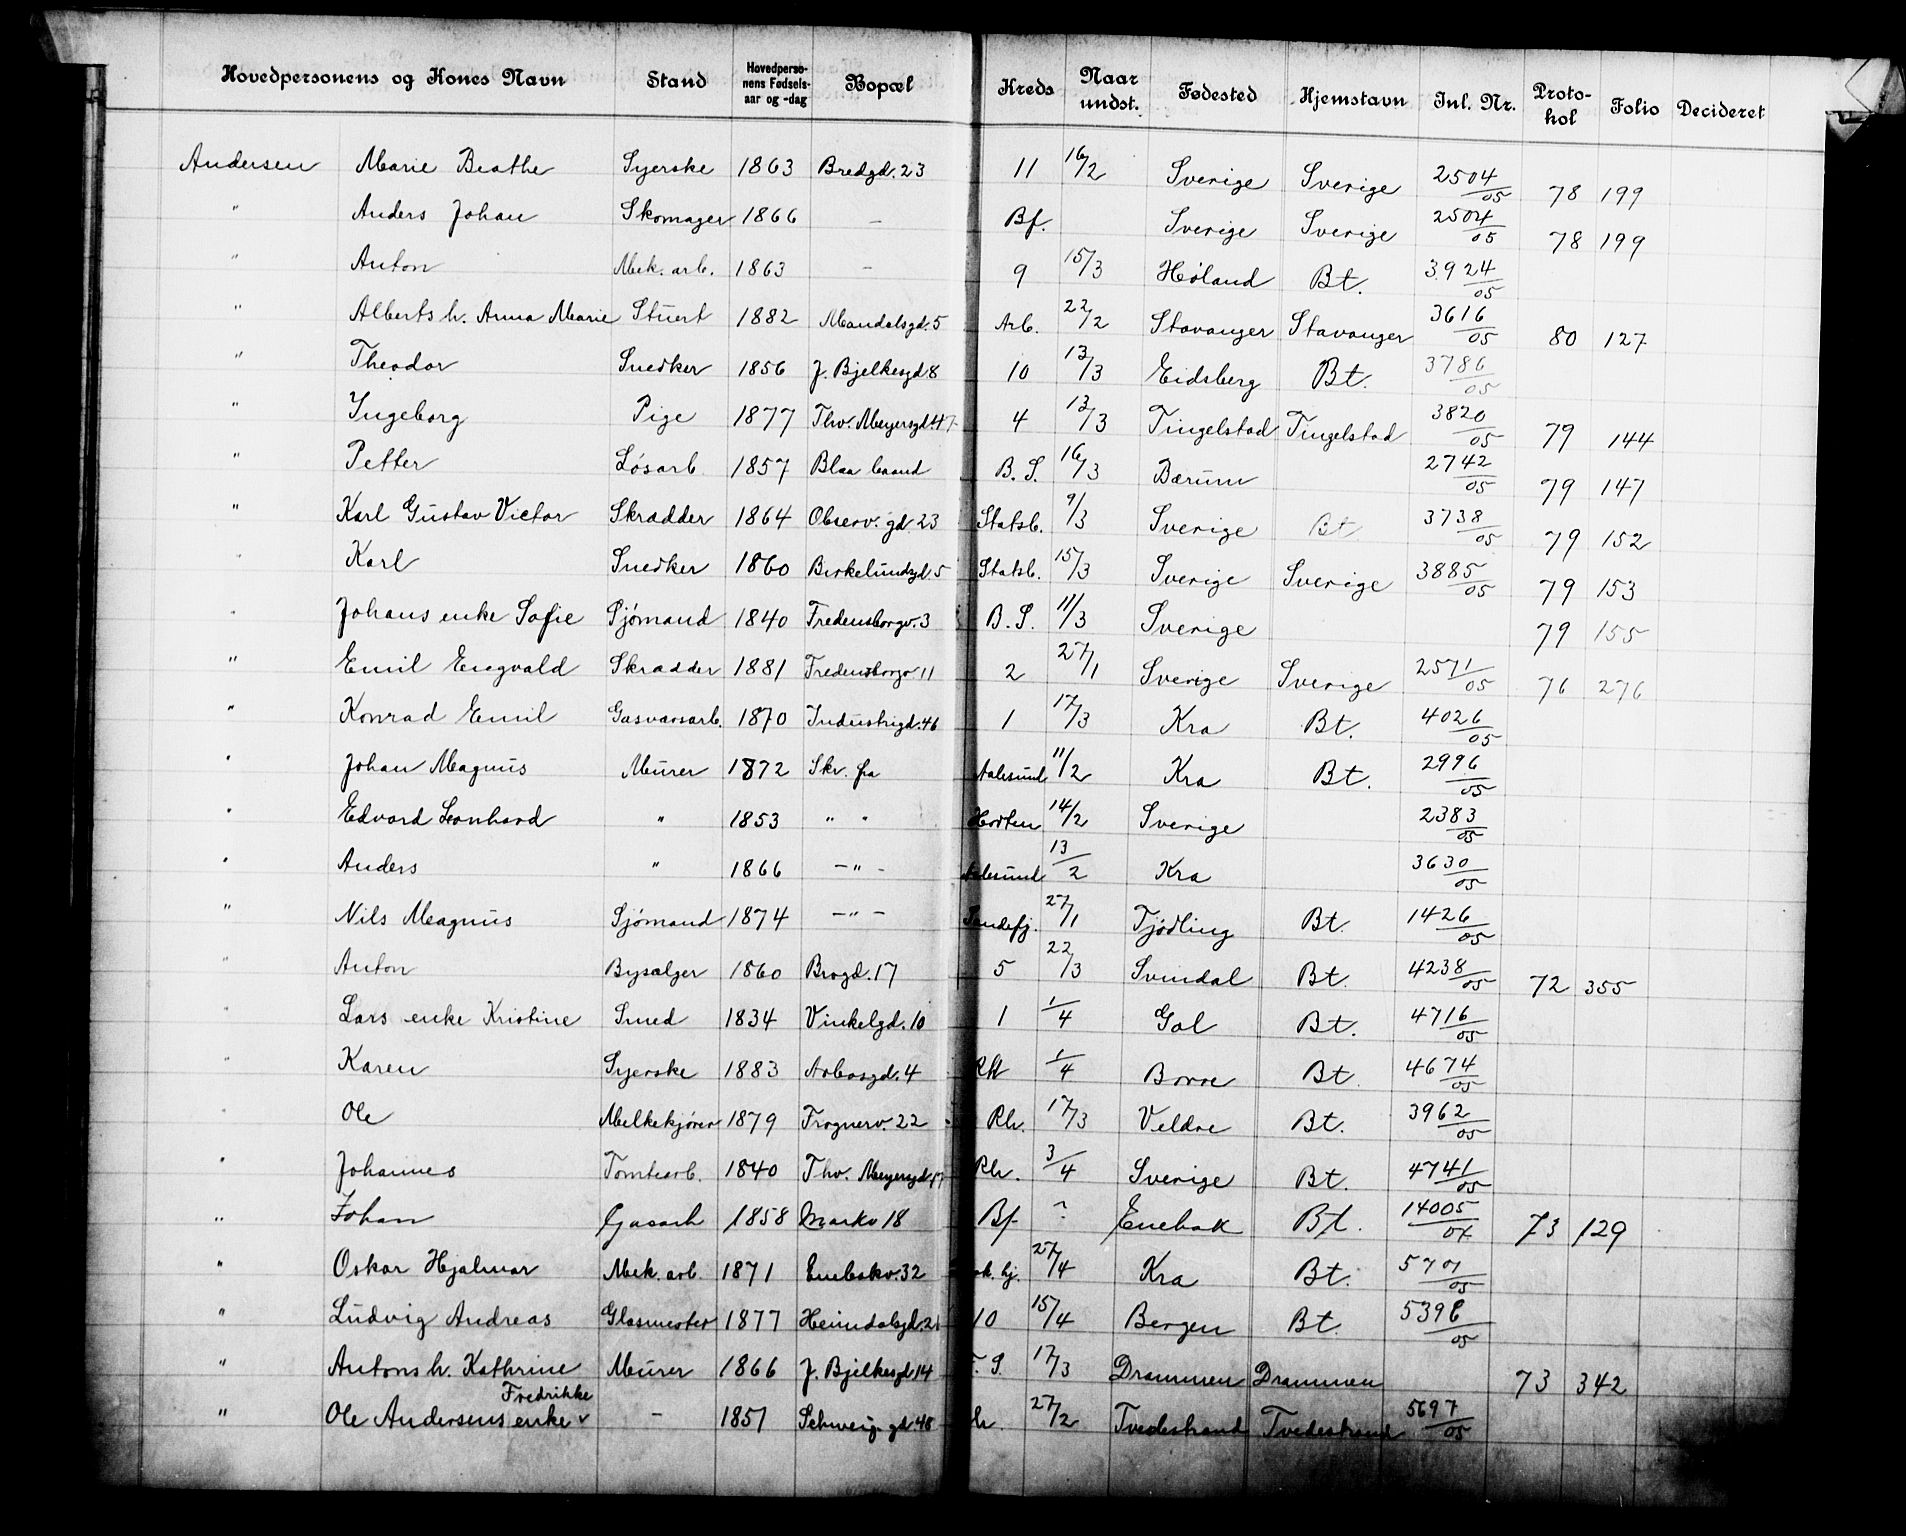 Hovedpersonens og Kones Navn Stand Hovedperso-nens Fødsels-aar og -dag Bopæl Kreds Naar undst. Fødested Hjemstavn Inl. Nr. Proto-kol Folio Decideret
Andersen Marie Beathe Syerske 1863 Bredgd. 23 11 16/2 Sverige Sverige 2504/05 78 199
" Anders Johan Skomager 1866 – Bf. Sverige Sverige 2504/05 78 199
" Anton Mek. arb. 1863 – 9 15/3 Høland Bt. 3924/05
" Alberts h. Anna Marie Stuert 1882 Mandalsgd. 5 Arb. 22/2 Stavanger Stavanger 3616/05 80 127
" Theodor Snedker 1856 J. Bjelkesgd 8 10 13/3 Eidsberg Bt. 3786/05
" Ingeborg Pige 1877 Thv. Meyersgd. 47 4 13/3 Tingelstad Tingelstad 3820/05 79 144
" Petter Løsarb. 1857 Blaa baand B. S. 16/3 Bærum 2742/05 79 147
" Karl Gustav Victor Skrædder 1864 Observ. gd. 23 Statsb. 9/3 Sverige Bt 3738/05 79 152
" Karl Snedker 1860 Birkelundsgd. 5 Statsb. 15/3 Sverige Sverige 3885/05 79 153
" Johans enke Sofie Sjømand 1840 Fredensborgv. 3 B. S. 11/3 Sverige 79 155
" Emil Engvald Skrædder 1881 Fredensborgv 11 2 27/1 Sverige Sverige 2571/05 76 276
" Konrad Emil Gasværsarb. 1870 Industrigd. 46 1 17/3 Kra Bt. 4026/05
" Johan Magnus Murer 1872 Skr. fra Aalesund 11/2 Kra Bt. 2996/05
" Edvard Leonhard " 1853 " " Horten 14/2 Sverige 2383/05
" Anders " 1866 – " – Aalesund 13/2 Kra 3630/05
" Nils Magnus Sjømand 1874 – " – Sandefj. 27/1 Tjødling Bt. 1426/05
" Anton Bysælger 1860 Brogd. 17 5 22/3 Svindal Bt. 4238/05 72 355
" Lars enke Kristine Smed 1834 Vinkelgd. 10 1 1/4 Gol Bt. 4716/05
" Karen Syerske 1883 Arbosgd. 4 1/4 Borre Bt. 4674/05
" Ole Melkekjører 1879 Frognerv. 22 Rh. 17/3 Veldre Bt. 3962/05
" Johannes Tomtearb. 1840 Thv. Meyersgd. Rh. 3/4 Sverige Bt. 4741/05
" Johan Gasarb 1858 Markv 18 Bf ? Enebak Bt. 14005/04 73 129
" Oskar Hjalmar Mek. arb. 1871 Enebakv. 32 hj. 27/4 Kra Bt. 5701/05
" Ludvig Andreas Glasmester 1877 Heimdalsgd. 10 15/4 Bergen Bt. 5396/05
" Antons h. Kathrine Murer 1866 J. Bjelkesgd 14 S. 17/3 Drammen Drammen 73 342
Fredrikke
" Ole Andersens enke v – 1851 Schweig. gd. 48 27/2 Tvedestrand Tvedestrand 5697/05